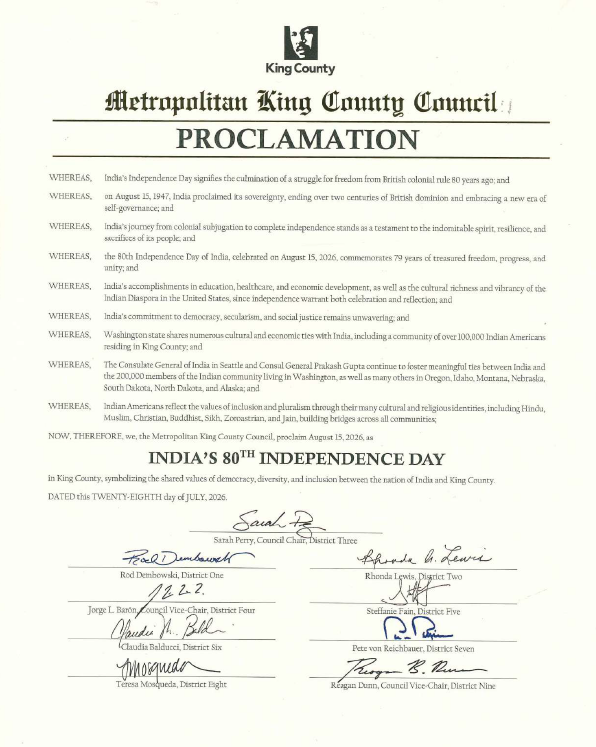 King County
Metropolitan King County Council
PROCLAMATION
WHEREAS, India's Independence Day signifies the culmination of a struggle for freedom from British colonial rule 80 years ago; and
WHEREAS, on August 15, 1947, India proclaimed its sovereignty, ending over two centuries of British dominion and embracing a new era of
self-governance; and
WHEREAS, India's journey from colonial subjugation to complete independence stands as a testament to the indomitable spirit, resilience, and
sacrifices of its people; and
WHEREAS, the 80th Independence Day of India, celebrated on August 15, 2026, commemorates 79 years of treasured freedom, progress, and
unity; and
WHEREAS, India's accomplishments in education, healthcare, and economic development, as well as the cultural richness and vibrancy of the
Indian Diaspora in the United States, since independence warrant both celebration and reflection; and
WHEREAS, India's commitment to democracy, secularism, and social justice remains unwavering; and
WHEREAS, Washington state shares numerous cultural and economic ties with India, including a community of over 100,000 Indian Americans
residing in King County; and
WHEREAS, The Consulate General of India in Seattle and Consul General Prakash Gupta continue to foster meaningful ties between India and
the 200,000 members of the Indian community living in Washington, as well as many others in Oregon, Idaho, Montana, Nebraska,
South Dakota, North Dakota, and Alaska; and
WHEREAS, Indian Americans reflect the values of inclusion and pluralism through their many cultural and religious identities, including Hindu,
Muslim, Christian, Buddhist, Sikh, Zoroastrian, and Jain, building bridges across all communities;
NOW, THEREFORE, we, the Metropolitan King County Council, proclaim August 15, 2026, as
INDIA'S 80TH INDEPENDENCE DAY
in King County, symbolizing the shared values of democracy, diversity, and inclusion between the nation of India and King County.
DATED this TWENTY-EIGHTH day of JULY, 2026.
Sarah Perry, Council Chair, District Three
Rod Dembowski
Rhonda A. Lewis
Rod Dembowski, District One
Rhonda Lewis, District Two
Jorge L. Barón, Council Vice-Chair, District Four
Steffanie Fain, District Five
Claudia M. Bald
Claudia Balducci, District Six
Pete von Reichbauer, District Seven
TMosqueda
Reagan B. Dunn
Teresa Mosqueda, District Eight
Reagan Dunn, Council Vice-Chair, District Nine